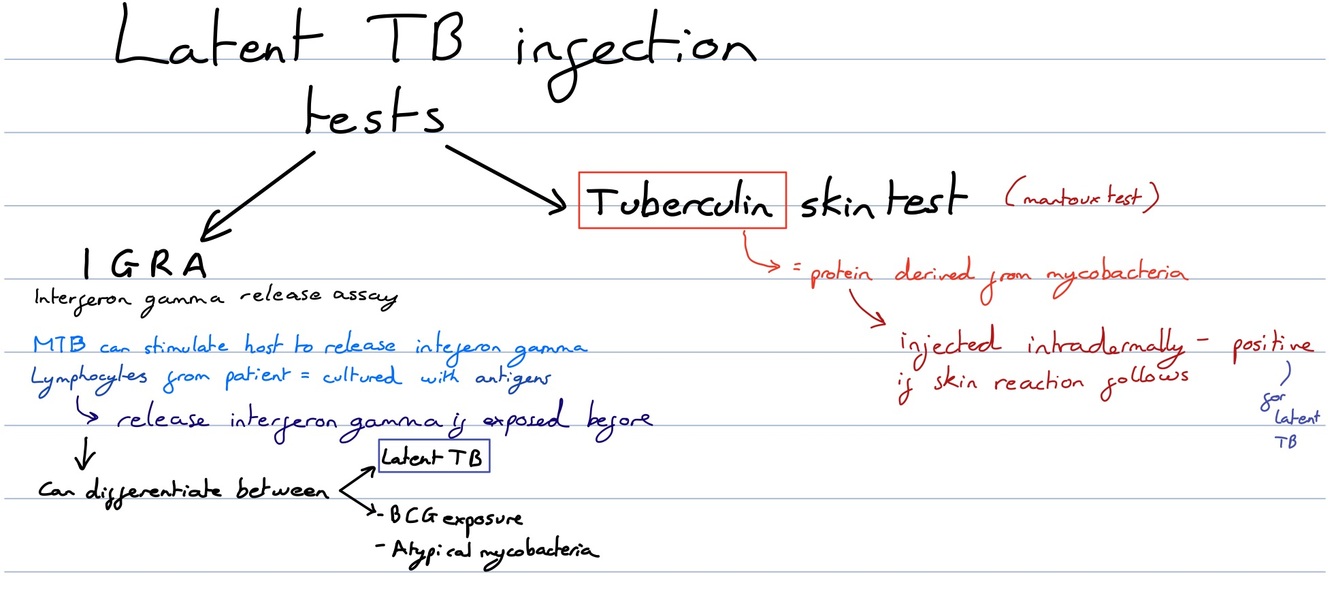 Latent TB infection
tests
IGRA
Interferon gamma release assay
MTB can stimulate host to release inteferon gamma
Lymphocytes from patient = cultured with antigens
release interferon gamma if exposed before
Can differentiate between
Latent TB
- BCG exposure
- Atypical mycobacteria
Tuberculin skin test (mantoux test)
= protein derived from mycobacteria
injected intradermally - positive
if skin reaction follows
for
latent
TB